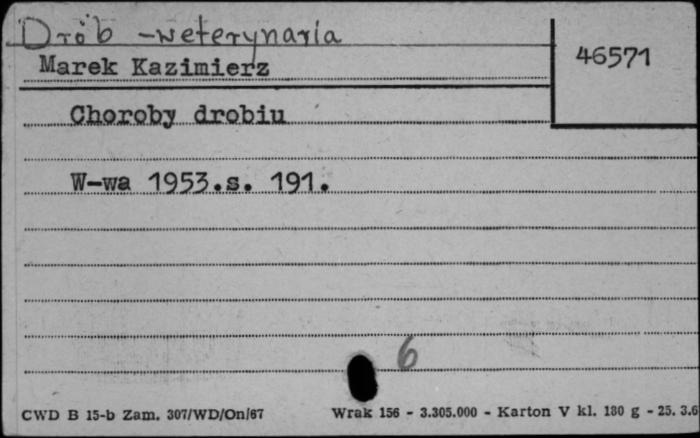 Drób - weterynaria
46571
Marek Kazimierz
Choroby drobiu
W-wa 1953.s. 191.
6
CWD B 15-b Zam. 307/WD/On/67 Wrak 156 - 3.305.000 - Karton V kl. 180 g - 25. 3.6